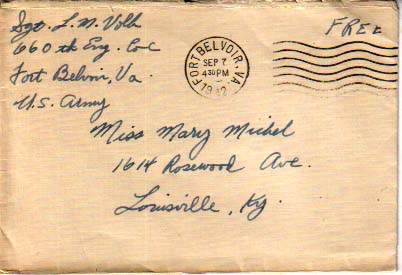 Sgt. L. N. Volk
660th Eng. Co C
Fort Belvoir, Va.
U.S. Army
FREE
FORT BELVOIR, VA.
SEP 7
4 30 PM
1942
Miss Mary Michel
1614 Rosewood Ave.
Louisville, Ky.